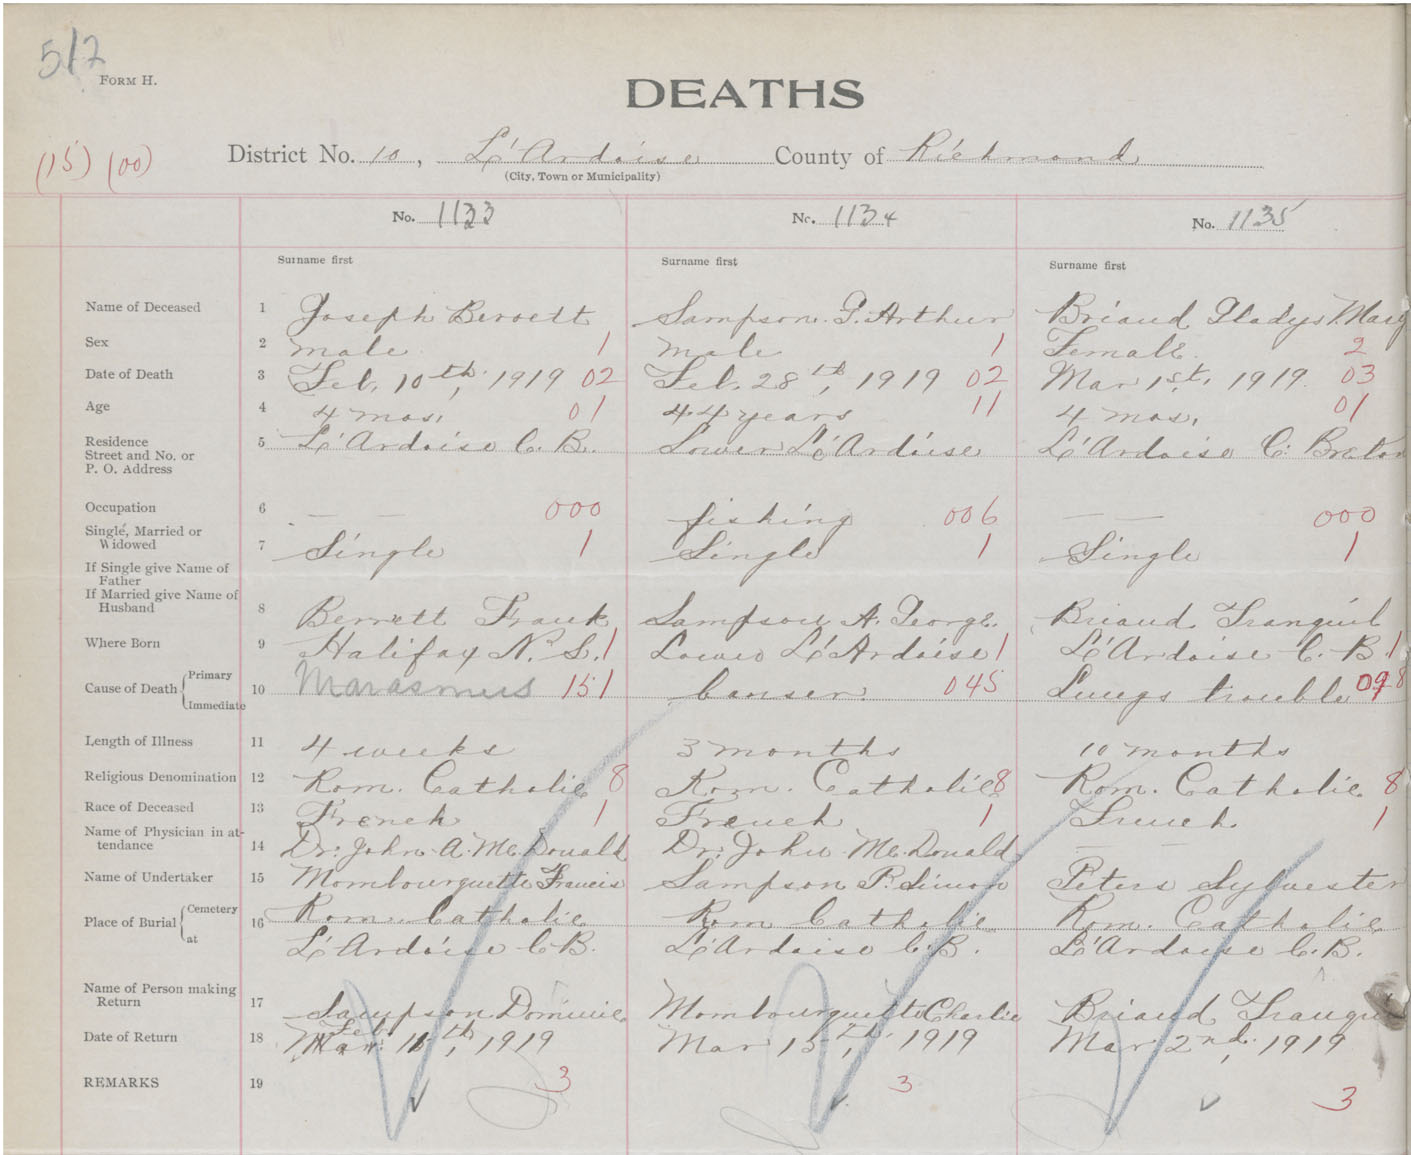 512
FORM H.
DEATHS
(15) (00)
District No. 10, L'Ardoise County of Richmond
(City, Town or Municipality)
No. 1133 No. 1134 No. 1135
Surname first Surname first Surname first
Name of Deceased 1 Joseph Berrett Sampson P. Arthur Briand Gladys Mary
Sex 2 male 1 male 1 Female 2
Date of Death 3 Feb. 10th, 1919 02 Feb. 28th, 1919 02 Mar 1st, 1919 03
Age 4 4 mos. 01 44 years 11 4 mos. 01
Residence
Street and No. or
P. O. Address 5 L'Ardoise C. B. Lower L'Ardoise L'Ardoise C. Breton
Occupation 6 — — 000 fishing 006 — — 000
Single, Married or
Widowed 7 Single 1 Single 1 Single 1
If Single give Name of
Father
If Married give Name of
Husband 8 Berrett Frank Sampson A. George Briand Tranquil
Where Born 9 Halifax N. S. 1 Lower L'Ardoise 1 L'Ardoise C. B. 1
Cause of Death { Primary Immediate 10 Marasmus 151 Canser 045 Lungs trouble 098
Length of Illness 11 4 weeks 3 months 10 months
Religious Denomination 12 Rom. Catholic 8 Rom. Catholic 8 Rom. Catholic 8
Race of Deceased 13 French 1 French 1 French 1
Name of Physician in at-
tendance 14 Dr. John A. McDonald Dr. John McDonald — —
Name of Undertaker 15 Mombourquette Francis Sampson P. Simon Peters Sylvester
Place of Burial { Cemetery 16 Rom. Catholic Rom Catholic Rom. Catholic
at L'Ardoise C. B. L'Ardoise C. B. L'Ardoise C. B.
Name of Person making
Return 17 Sampson Dominic Mombourquette Charlie Briand Tranquil
Date of Return 18 Feb 1919 Mar 15th, 1919 Mar 2nd, 1919
REMARKS 19 3 3 3